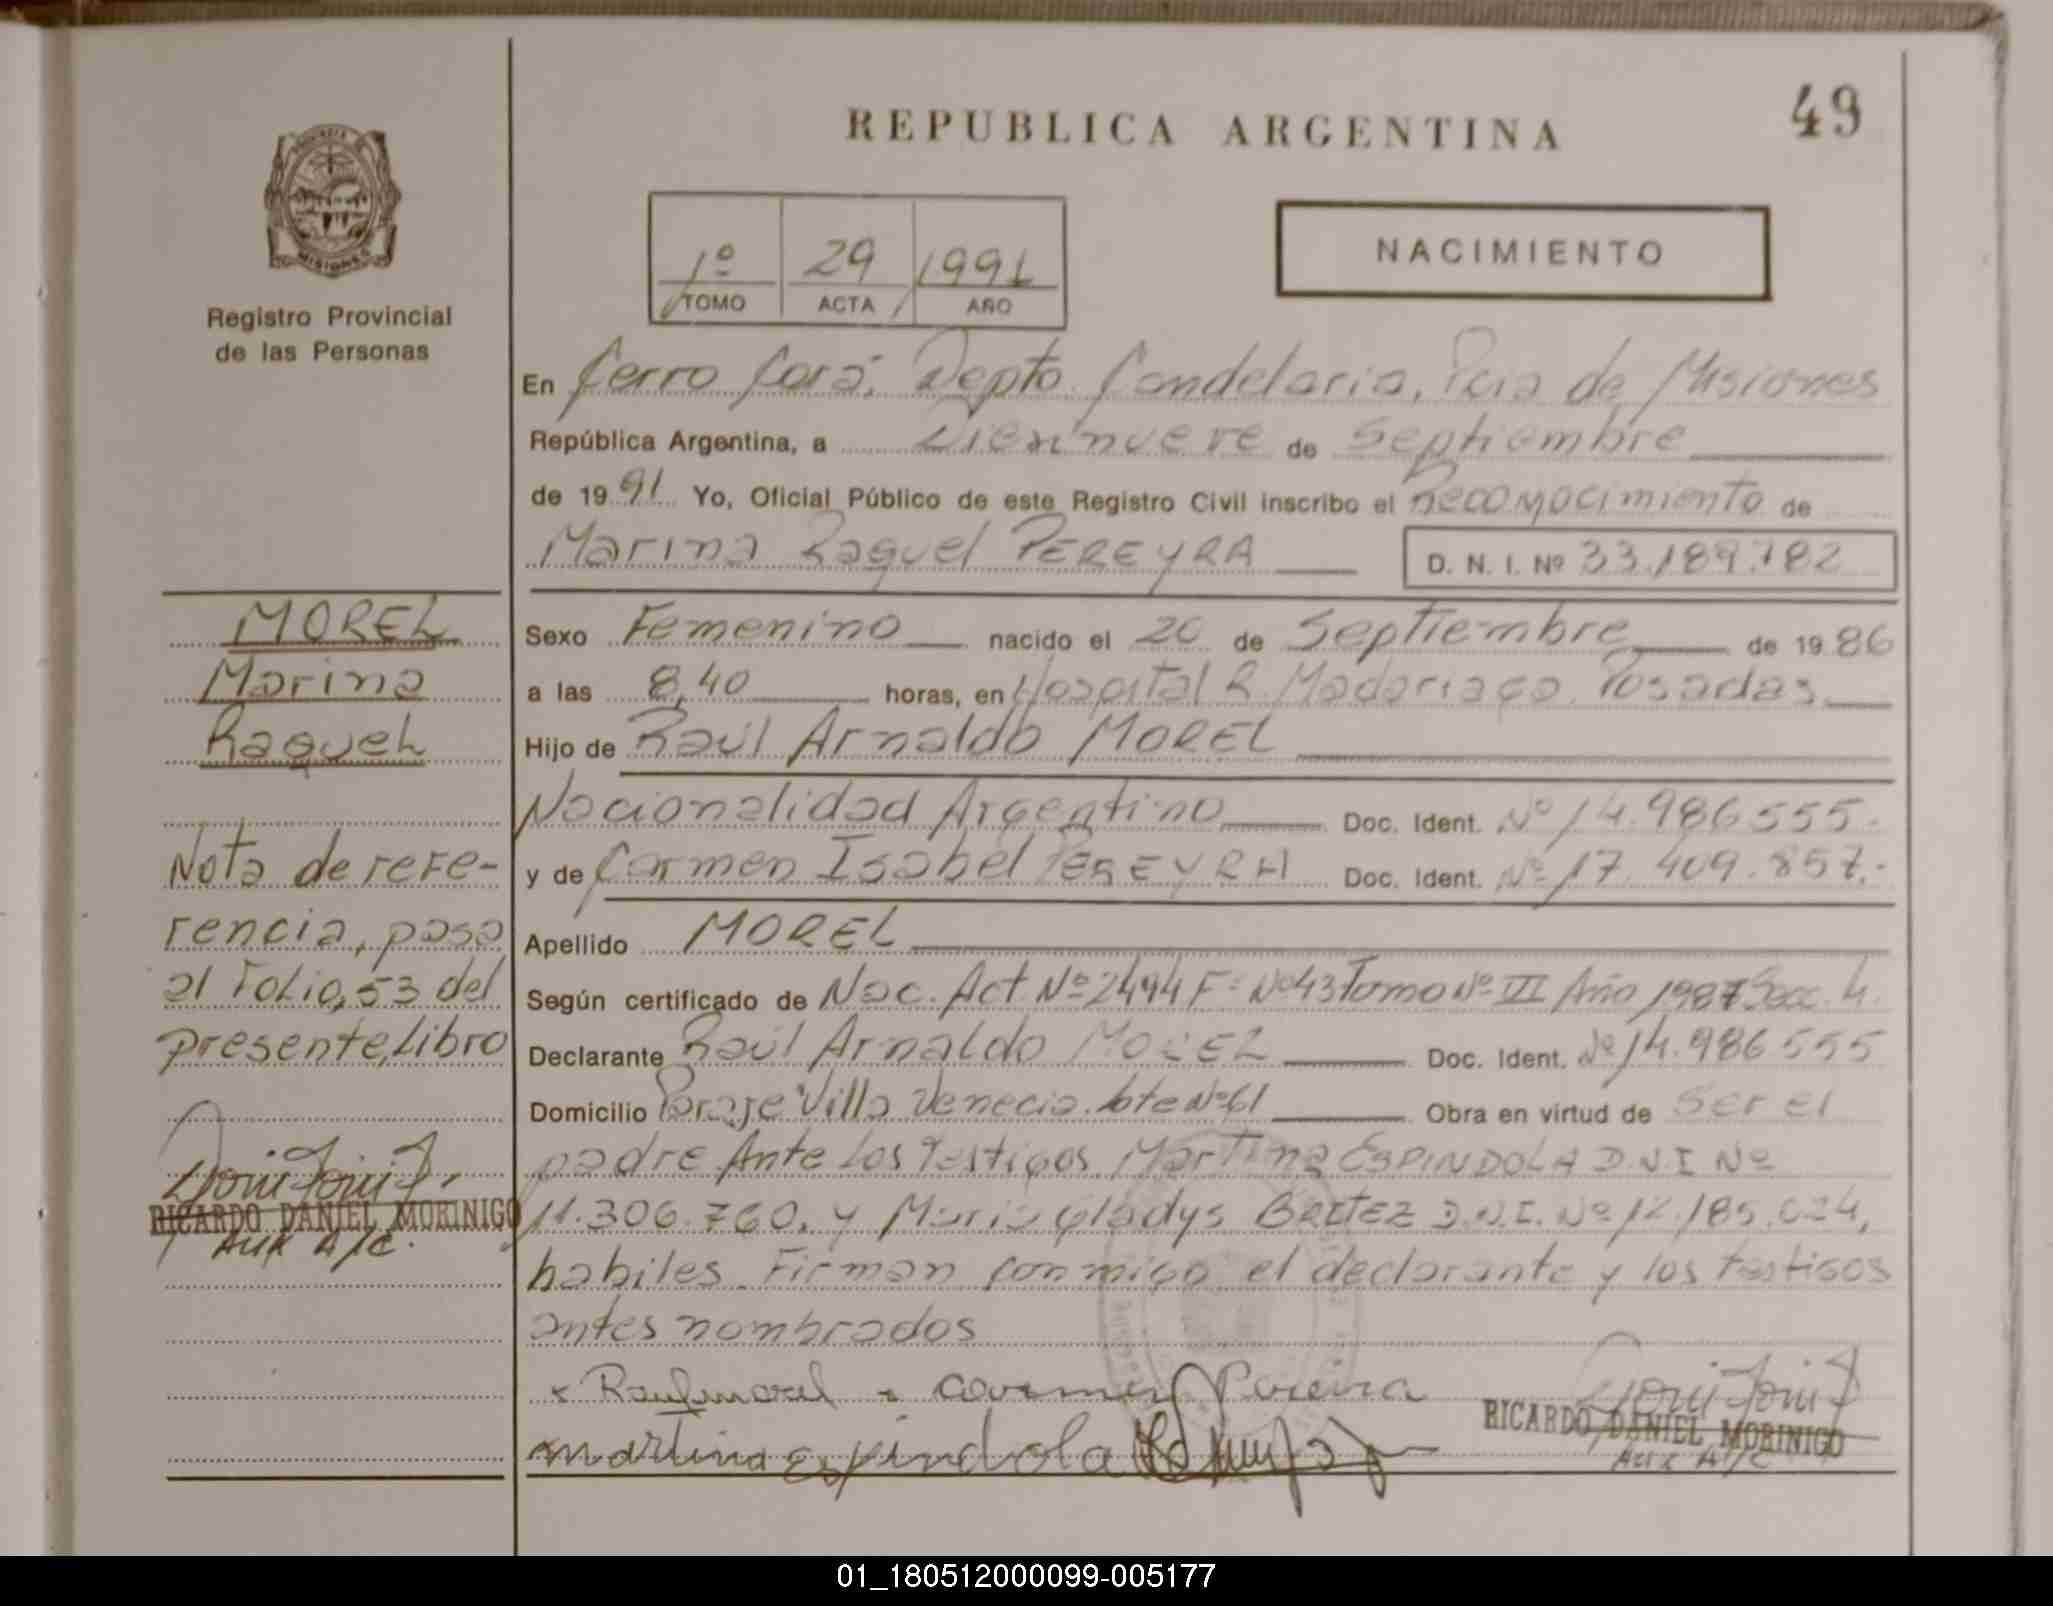 49
REPUBLICA ARGENTINA
MISIONES
Registro Provincial
de las Personas
1º 29 1991
TOMO ACTA AÑO
NACIMIENTO
En Cerro Corá, Depto Candelaria, Pcia de Misiones
República Argentina, a Diecinueve de Septiembre
de 1991 Yo, Oficial Público de este Registro Civil inscribo el Reconocimiento de
Marina Raquel PEREYRA D. N. I. Nº 33.189.782
MOREL
Marina
Raquel
Sexo Femenino nacido el 20 de Septiembre de 1986
a las 8,40 horas, en Hospital R. Madariaga. Posadas
Hijo de Raúl Arnaldo MOREL
Nacionalidad Argentino Doc. Ident. Nº 14.986555.
y de Carmen Isabel PEREYRA Doc. Ident. Nº 17.409.857.-
Apellido MOREL
Según certificado de Nac. Act. Nº 2494 Fº Nº 43 Tomo Nº VII Año 1987 Secc. 4.
Declarante Raúl Arnaldo MOREL Doc. Ident. Nº 14.986555
Domicilio Paraje Villa Venecia. lote Nº 61 Obra en virtud de Ser el
padre Ante los testigos Martina ESPINDOLA D.N.I Nº
11.306.760, y Maria Gladys BEITEZ D.N.I. Nº 12.185.024,
habiles. Firman conmigo el declarante y los testigos
antes nombrados
Nota de refe-
rencia, pasa
al Folio, 53 del
presente, Libro
RICARDO DANIEL MORINIGO
Aux A/C.
x Raul morel x carmen Pereira
martina Espindola
RICARDO DANIEL MORINIGO
Aux A/C
01_180512000099-005177